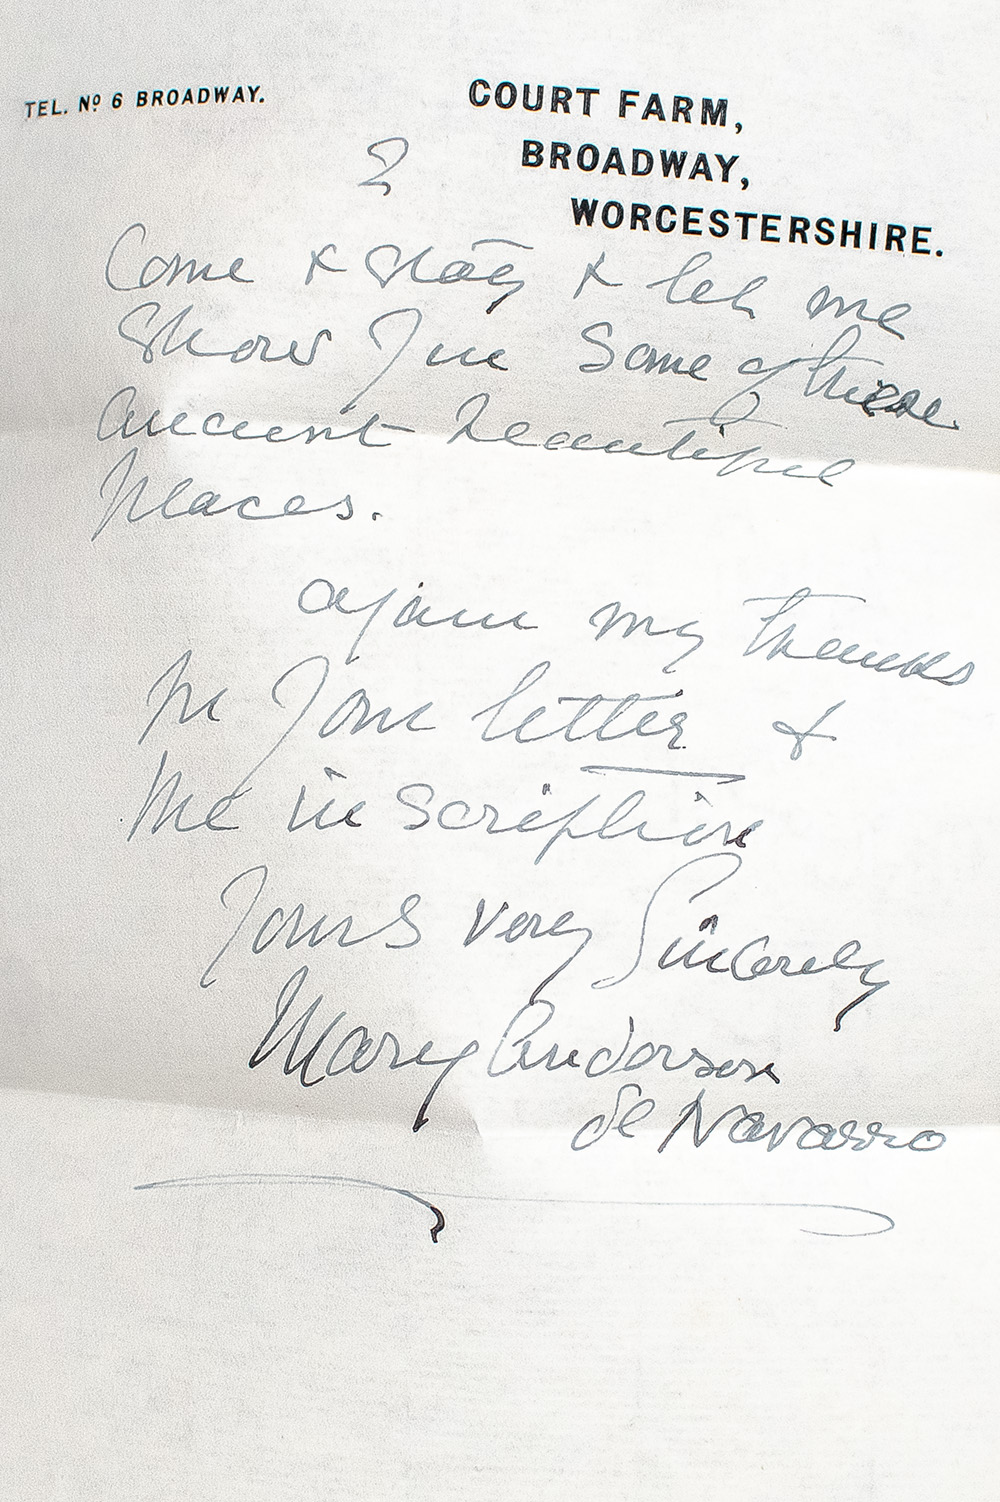 TEL. Nº 6 BROADWAY.
COURT FARM,
BROADWAY,
WORCESTERSHIRE.
2
Come & stay & let me
show you some of these
ancient beautiful
places.
Again my thanks
for your letter &
the inscription
Yours very sincerely
Mary Anderson
de Navarro